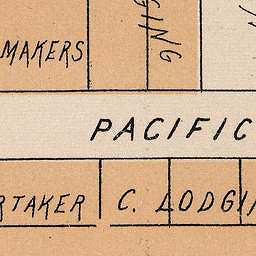 MAKERS
GING
PACIFIC
RTAKER
C. LODGI